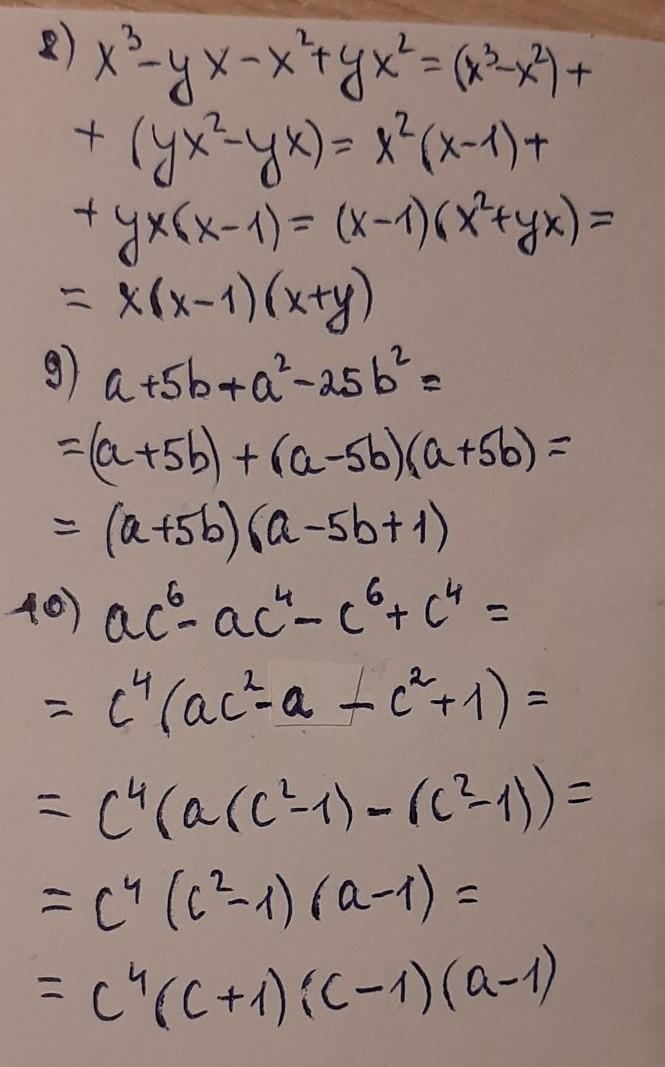 8) x³-yx-x²+yx²=(x³-x²)+
+(yx²-yx)=x²(x-1)+
+yx(x-1)=(x-1)(x²+yx)=
=x(x-1)(x+y)
9) a+5b+a²-25b²=
=(a+5b)+(a-5b)(a+5b)=
=(a+5b)(a-5b+1)
10) ac⁶-ac⁴-c⁶+c⁴=
=c⁴(ac²-a-c²+1)=
=c⁴(a(c²-1)-(c²-1))=
=c⁴(c²-1)(a-1)=
=c⁴(c+1)(c-1)(a-1)